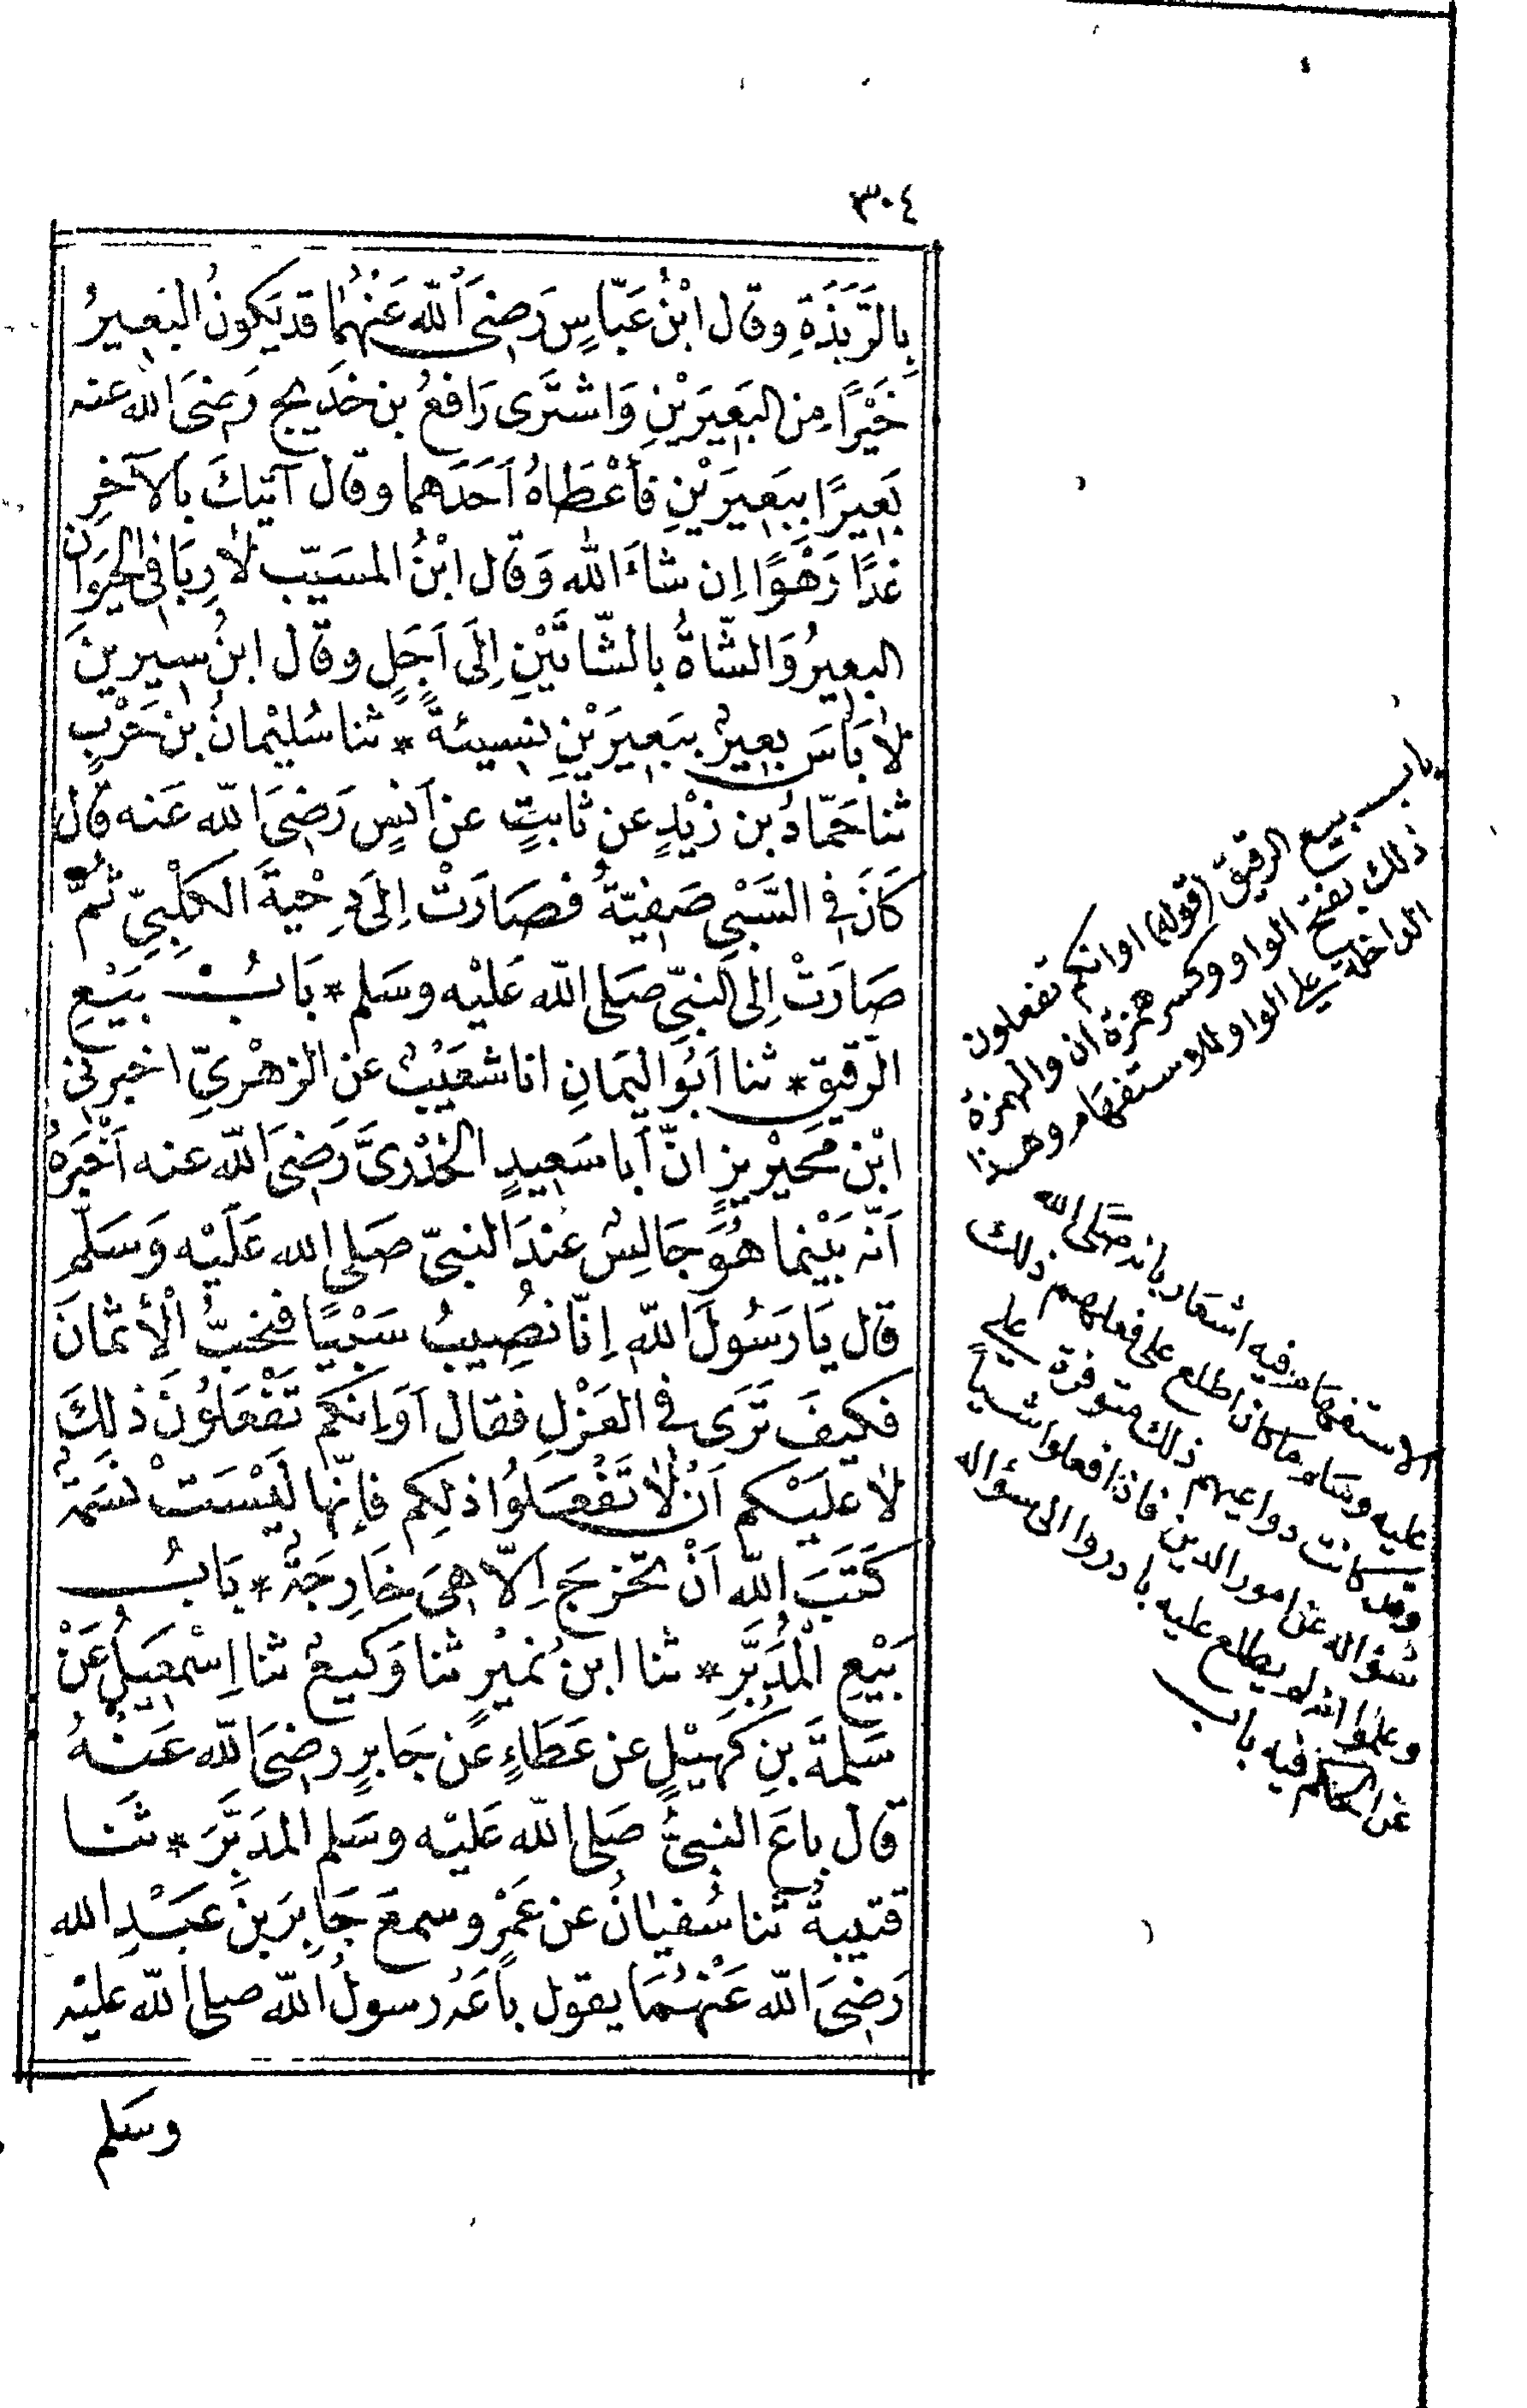 ٣٠٤
بِالرَّبَذَةِ وقال ابْنُ عَبّاسٍ رَضِىَ اَللّٰه عَنْهُمَا قد يَكونُ البَعِيرُ
خَيْرًا مِن البَعِيرَيْنِ وَاشتَرَى رَافعُ بن خَدِيج رَضىَ الله عنه
بَعِيرًا بِبَعِيرَيْنِ فأعْطَاهُ اَحَدَهما وقال آتيكَ بالآخرِ
غدًا رَهْوًا اِن شاءَ الله وَقال ابْنُ المسَيّب لا رِبَا فى الحيَوَان
البعيرُ وَالشّاةُ بالشّاتَيْنِ اِلَى اَجَلٍ وقال ابنُ سيرينَ
لا بَاسَ بعيرٌ ببَعِيرَيْنِ نسِيئةً * ثنا سُليْمانُ بنُ حَرْبٍ
ثنا حَمّادُ بن زَيْدٍ عن ثابَتٍ عن اَنسٍ رَضِىَ اللّه عَنه قال
كَانَ فى السَّبْىِ صَفيّةُ فصَارَتْ اِلى دِحْيةَ الكلْبِىِّ ثمَّ
صَارَتْ اِلى النبِّى صَلى اللّه عَليْه وسَلم * بَابُ بَيْعِ
الرّقيق * ثنا اَبُو اليَمَانِ انا شعَيْبٌ عن الزهْرىِّ اخبرنى
ابْن محَيْريزٍ انّ أبا سَعِيدٍ الخدْرىَّ رَضِىَ اللّه عنه اَخْبَرَهُ
اَنّه بَيْنما هُوَ جَالِسٌ عندَ النبىّ صَلى الله عَليْه وَسَلّم
قال يَا رَسُولَ اللّه اِنّا نصِيبُ سَبْيًا فنحبُّ الْأثمانَ
فكيفَ تَرَى فى العَزْلِ فقال اَوَاِنكم تَفْعَلوُنَ ذلِكَ
لا عليْكم اَنْ لا تَفْعَلُوا ذلِكم فإنّها ليْسَتْ نسَمَةٌ
كَتَبَ اللّه اَنْ تخْرجَ اِلّا هىَ خَارِجَةٌ * بَابُ
بَيْعِ الْمُدَبَّرِ * ثنا ابن نُميْرٍ ثنا وَكيعٌ ثنا اِسْمعِيلُ عَنْ
سَلمةَ بنِ كُهيْلٍ عن عَطَاءٍ عَن جَابرٍ رضِىَ اللّه عَنْهُ
قال باعَ النبىُّ صَلى اللّه عَليْه وسَلم المدَبَّرَ * ثَنا
قتيبةُ ثنا سُفيانُ عن عَمْرٍو سمعَ جَابِرَ بنَ عَبْدِ الله
رَضِىَ اللّه عَنْهُمَا يقول باعَهُ رسولُ اللّه صلى اللّه عليْه
وسَلم
باب بيع الرقيق (قوله) اوانكم تفعلون
ذلك بفتح الواو وكسر همزة ان والهمزة
الداخلة على الواو للاستفهام وهذا
الاستفهام فيه اشعار بانه صَلى الله
عليه وسلم ما كان اطلع على فعلهم ذلك
وقد كانت دواعيهم ذلك متوفرة على
سؤاله عن امور الدين فاذا فعلوا شيأ
وعلموا انه لم يطلع عليه بادروا الى سؤاله
عن الحكم فيه باب